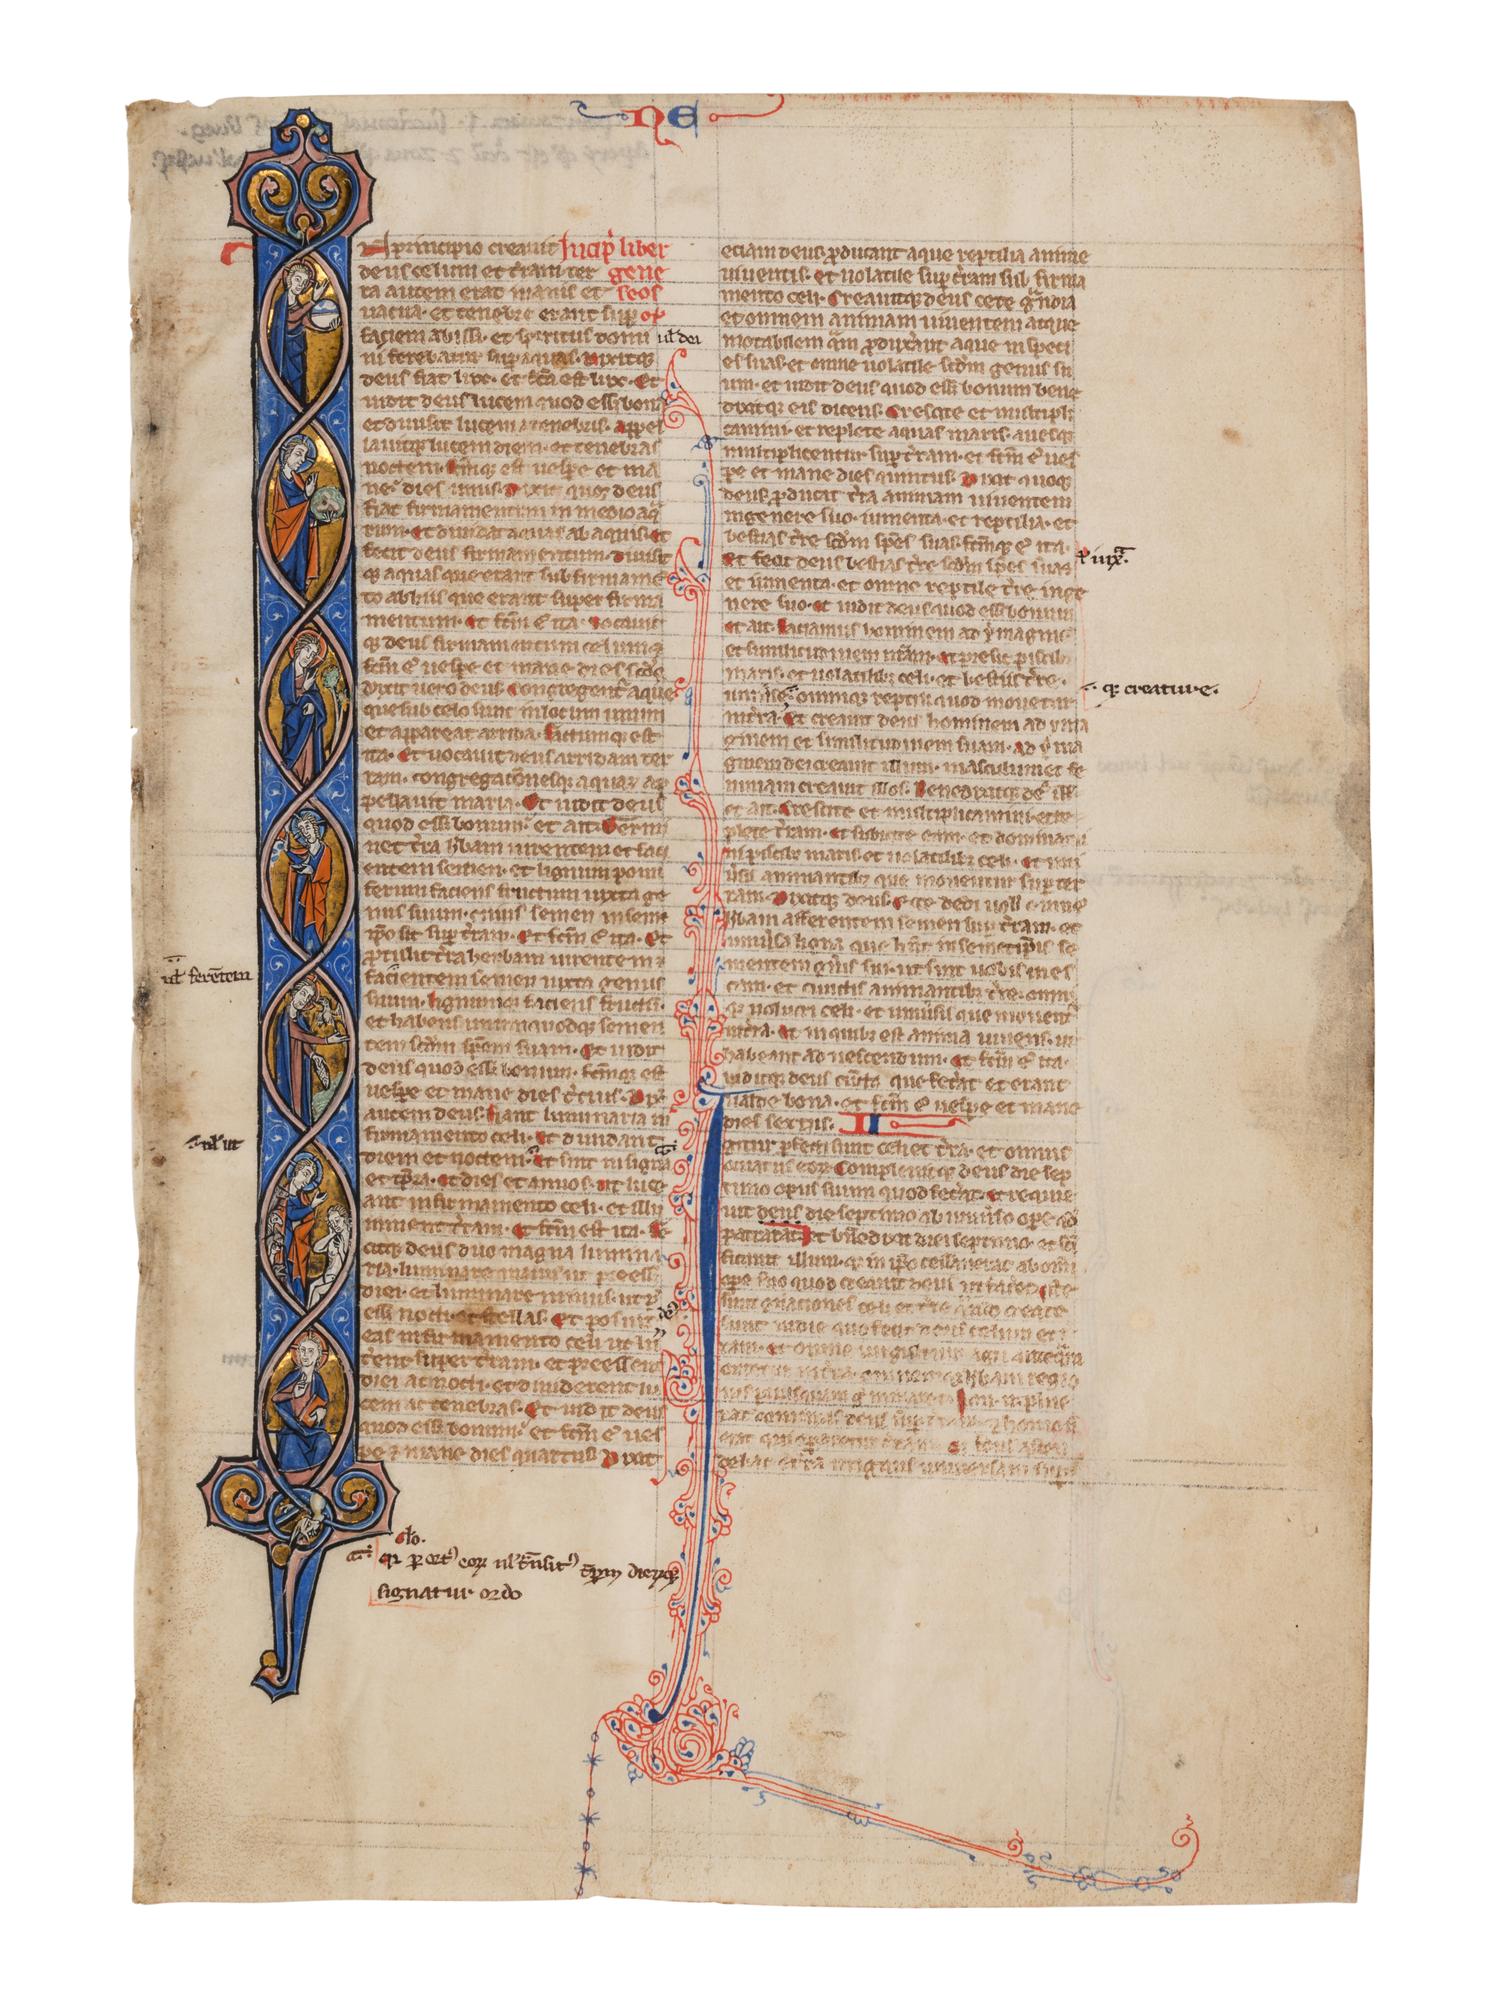 NE
N principio creauit Incip̄ liber
deus celum et t̄ram. ter gene
ra autem erat inanis et seos
uacua. et tenebre erant sup̄
faciem abissi. et spiritus domi
ul̄ dei
ni ferebatur sup̄ aquas. Dixitq;
deus fiat lux. et fc̄a est lux. Et
uidit deus lucem quod esset bona
et diuisit lucem a tenebris. appel
lauitq; lucem diem. et tenebras
noctem. fc̄mq; est uesp̄e et ma
ne dies unus. Dixit quoq; deus
fiat firmamentum in medio aq̄
rum. et diuidat aquas ab aquis. et
fecit deus firmamentum. diuisit
q; aquas que erant sub firmame
to ab hiis que erant super firma
mentum. et fc̄m ē ita. uocauit
q; deus firmamentum celum. q;
fc̄m ē uesp̄e et mane dies sc̄ds
Dixit uero deus. Congregent̄ aque
que sub celo sunt in locum unum
et appareat arida. factumq; est
ita. Et uocauit deus aridam ter
ram. congregationesq; aquar̄ ap
pellauit maria. Et uidit deus
quod esset bonum. et ait. Germi
net t̄ra h̄bam uirentem et faci
entem semen. et lignum pomi
ferum faciens fructum iuxta ge
nus suum. cuius semen in seme
ip̄o sit sup̄ t̄ram. Et fc̄m ē ita. Et
p̄tulit t̄ra herbam uirentem. et
ul̄ ferentem
facientem semen iuxta genus
suum. lignumq; faciens fructū.
et habens unumquodq; semen
tem sc̄dm sp̄em suam. Et uidit
deus quod esset bonum. fc̄mq; est
uesp̄e et mane dies t̄cius. Dix̄
autem deus. fiant luminaria in
firmamento celi. et diuidant
ul̄ ut
diem et noctem. et sint in signa
et tp̄ra. et dies et annos. ut luce
ant in firmamento celi. et illu
minent t̄ram. et fc̄m est ita. fe
citq; deus duo magna lumina
ria. luminare maius ut p̄esset
diei. et luminare minus. ut p̄
esset nocti. et stellas. Et posuit
eas in firmamento celi ut lu
c̄ent super t̄ram. et preessent
diei ac nocti. et diuiderent lu
cem ac tenebras. Et uidit deus
quod esset bonum. et fc̄m ē ues
pe et mane dies quartus. Dixit
signatur ordo
eciam deus p̄ducant aque reptilia anime
uiuentis. et uolatile sup̄ t̄ram sub firma
mento celi. Creauitq; deus cete g̃ndia
et omnem animam uiuentem atque
motabilem q̃m p̄dux̄ant aque in speci
es suas. et omne uolatile sc̄dm genus su
um. et uidit deus quod esset bonum bene
dixitq; eis dicens. Crescite et multipli
camini. et replete aquas maris. auesq;
multiplicentur sup̄ t̄ram. et fc̄m ē ues
pe et mane dies quintus. Dixit quoq;
deus. p̄ducat t̄ra animam uiuentem
in genere suo. iumenta. et reptilia. et
bestias t̄re sc̄dm sp̄es suas. fc̄mq; ē ita.
Et fecit deus bestias t̄re sc̄dm sp̄es suas
et iumenta. et omne reptile t̄re in ge
nere suo. et uidit deus quod esset bonum
et ait. faciamus hominem ad ymagine
et similitudinem nr̄am. et presit piscib;
maris. et uolatilib; celi. et bestiis t̄re.
q; creature.
omniq; reptili quod mouetur
in t̄ra. Et creauit deus hominem ad yma
ginem et similitudinem suam. ad yma
ginem dei creauit illum. masculum et fe
minam creauit illos. Benedixitq; deus illis
et ait. Crescite et multiplicamini. et re
plete t̄ram. et subicite eam. et dominam
in piscib; maris. et uolatilib; celi. et uni
u̅sis animantib; que mouentur sup̄ ter
ram. Dixitq; deus. Ecce dedi uob̄ omnē
h̄bam afferentem semen sup̄ t̄ram. et
uniu̅sa ligna que hn̄t in semetip̄is se
mentem gn̄is sui. ut sint uobis in es
cam. et cunctis animantib; t̄re. omni
q; uolucri celi. et uniu̅sis que mouent̄
in t̄ra. et in quib; est anima uiuens. ut
habeant ad uescendum. et fc̄m ē ita.
uiditq; deus cūcta que fec̄at. et erant
ualde bona. et fc̄m ē uesp̄e et mane
dies sextus. II
gitur p̄fecti sunt celi et t̄ra. et omnis
ornatus eor̄. Compleuitq; deus die sep
timo opus suum quod fec̄at. et requie
uit deus die septimo ab uniu̅so ope q̄d
patrarat. et bn̄dixit diei septimo. et sc̄i
ficauit illum. q; in ip̄o cessauerat ab omni
ope suo quod creauit deus ut faceret. Iste
sunt gn̄ationes celi et t̄re quando create
sunt in die quo fecit deus celum et t̄
ram. et omne uirgultum agri antequam
oriretur in t̄ra. omnemq; h̄bam regio
nis priusquam g̃minaret. Non enim plue
rat dominus deus sup̄ t̄ram. et homo n̄
erat qui operaretur t̄ram. s; fons ascen
debat e t̄ra irrigans uniuersam sup̄